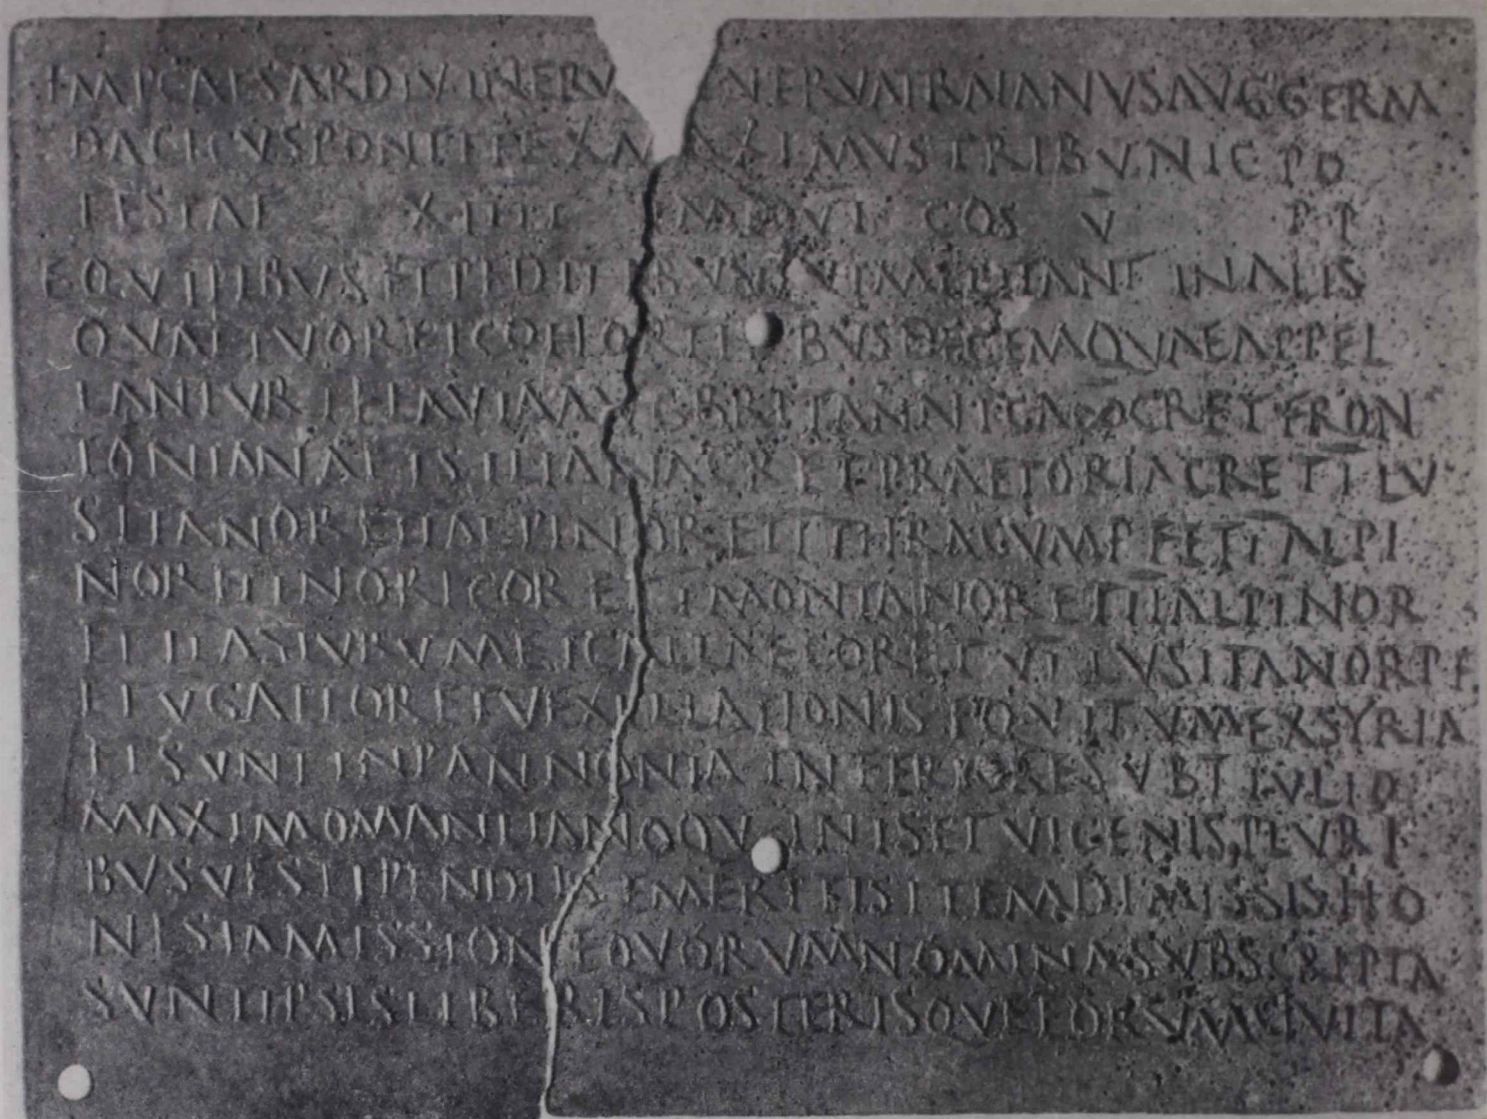 IMP CAESAR DIVI NERV NERVA TRAIANVS AVG GERM
DACICVS PONTIFEX MAXIMVS TRIBVNIC PO
TESTAT XIIII IMP VI COS V P P
EQVITIBVS ET PEDITIBVS QVI MILITANT IN ALIS
QVATTVOR ET COHORTIBVS DECEM QVAE APPEL
LANTVR I FLAVIA AVG BRITANNICA ∞ C R ET I FRON
TONIANA ET I SILIANA C R ET I PRAETORIA C R ET I LV
SITANOR ET I ALPINOR ET I THRACVM P F ET I ALPI
NOR ET I NORICOR ET I MONTANOR ET II ALPINOR
ET II ASTVRVM ET CALLAECOR ET VII LVSITANOR P F
ET V GALLOR ET VEXILLATIONIS EQVITVM EX SYRIA
ET SVNT IN PANNONIA INFERIORE SVB T IVLIO
MAXIMO MANLIANO QVINIS ET VICENIS PLVRI
BVSVE STIPENDIIS EMERITEIS ITEM DIMISSIS HO
NESTA MISSIONE QVORVM NOMINA SVBSCRIPTA
SVNT IPSIS LIBERIS POSTERISQVE EORVM CIVITA